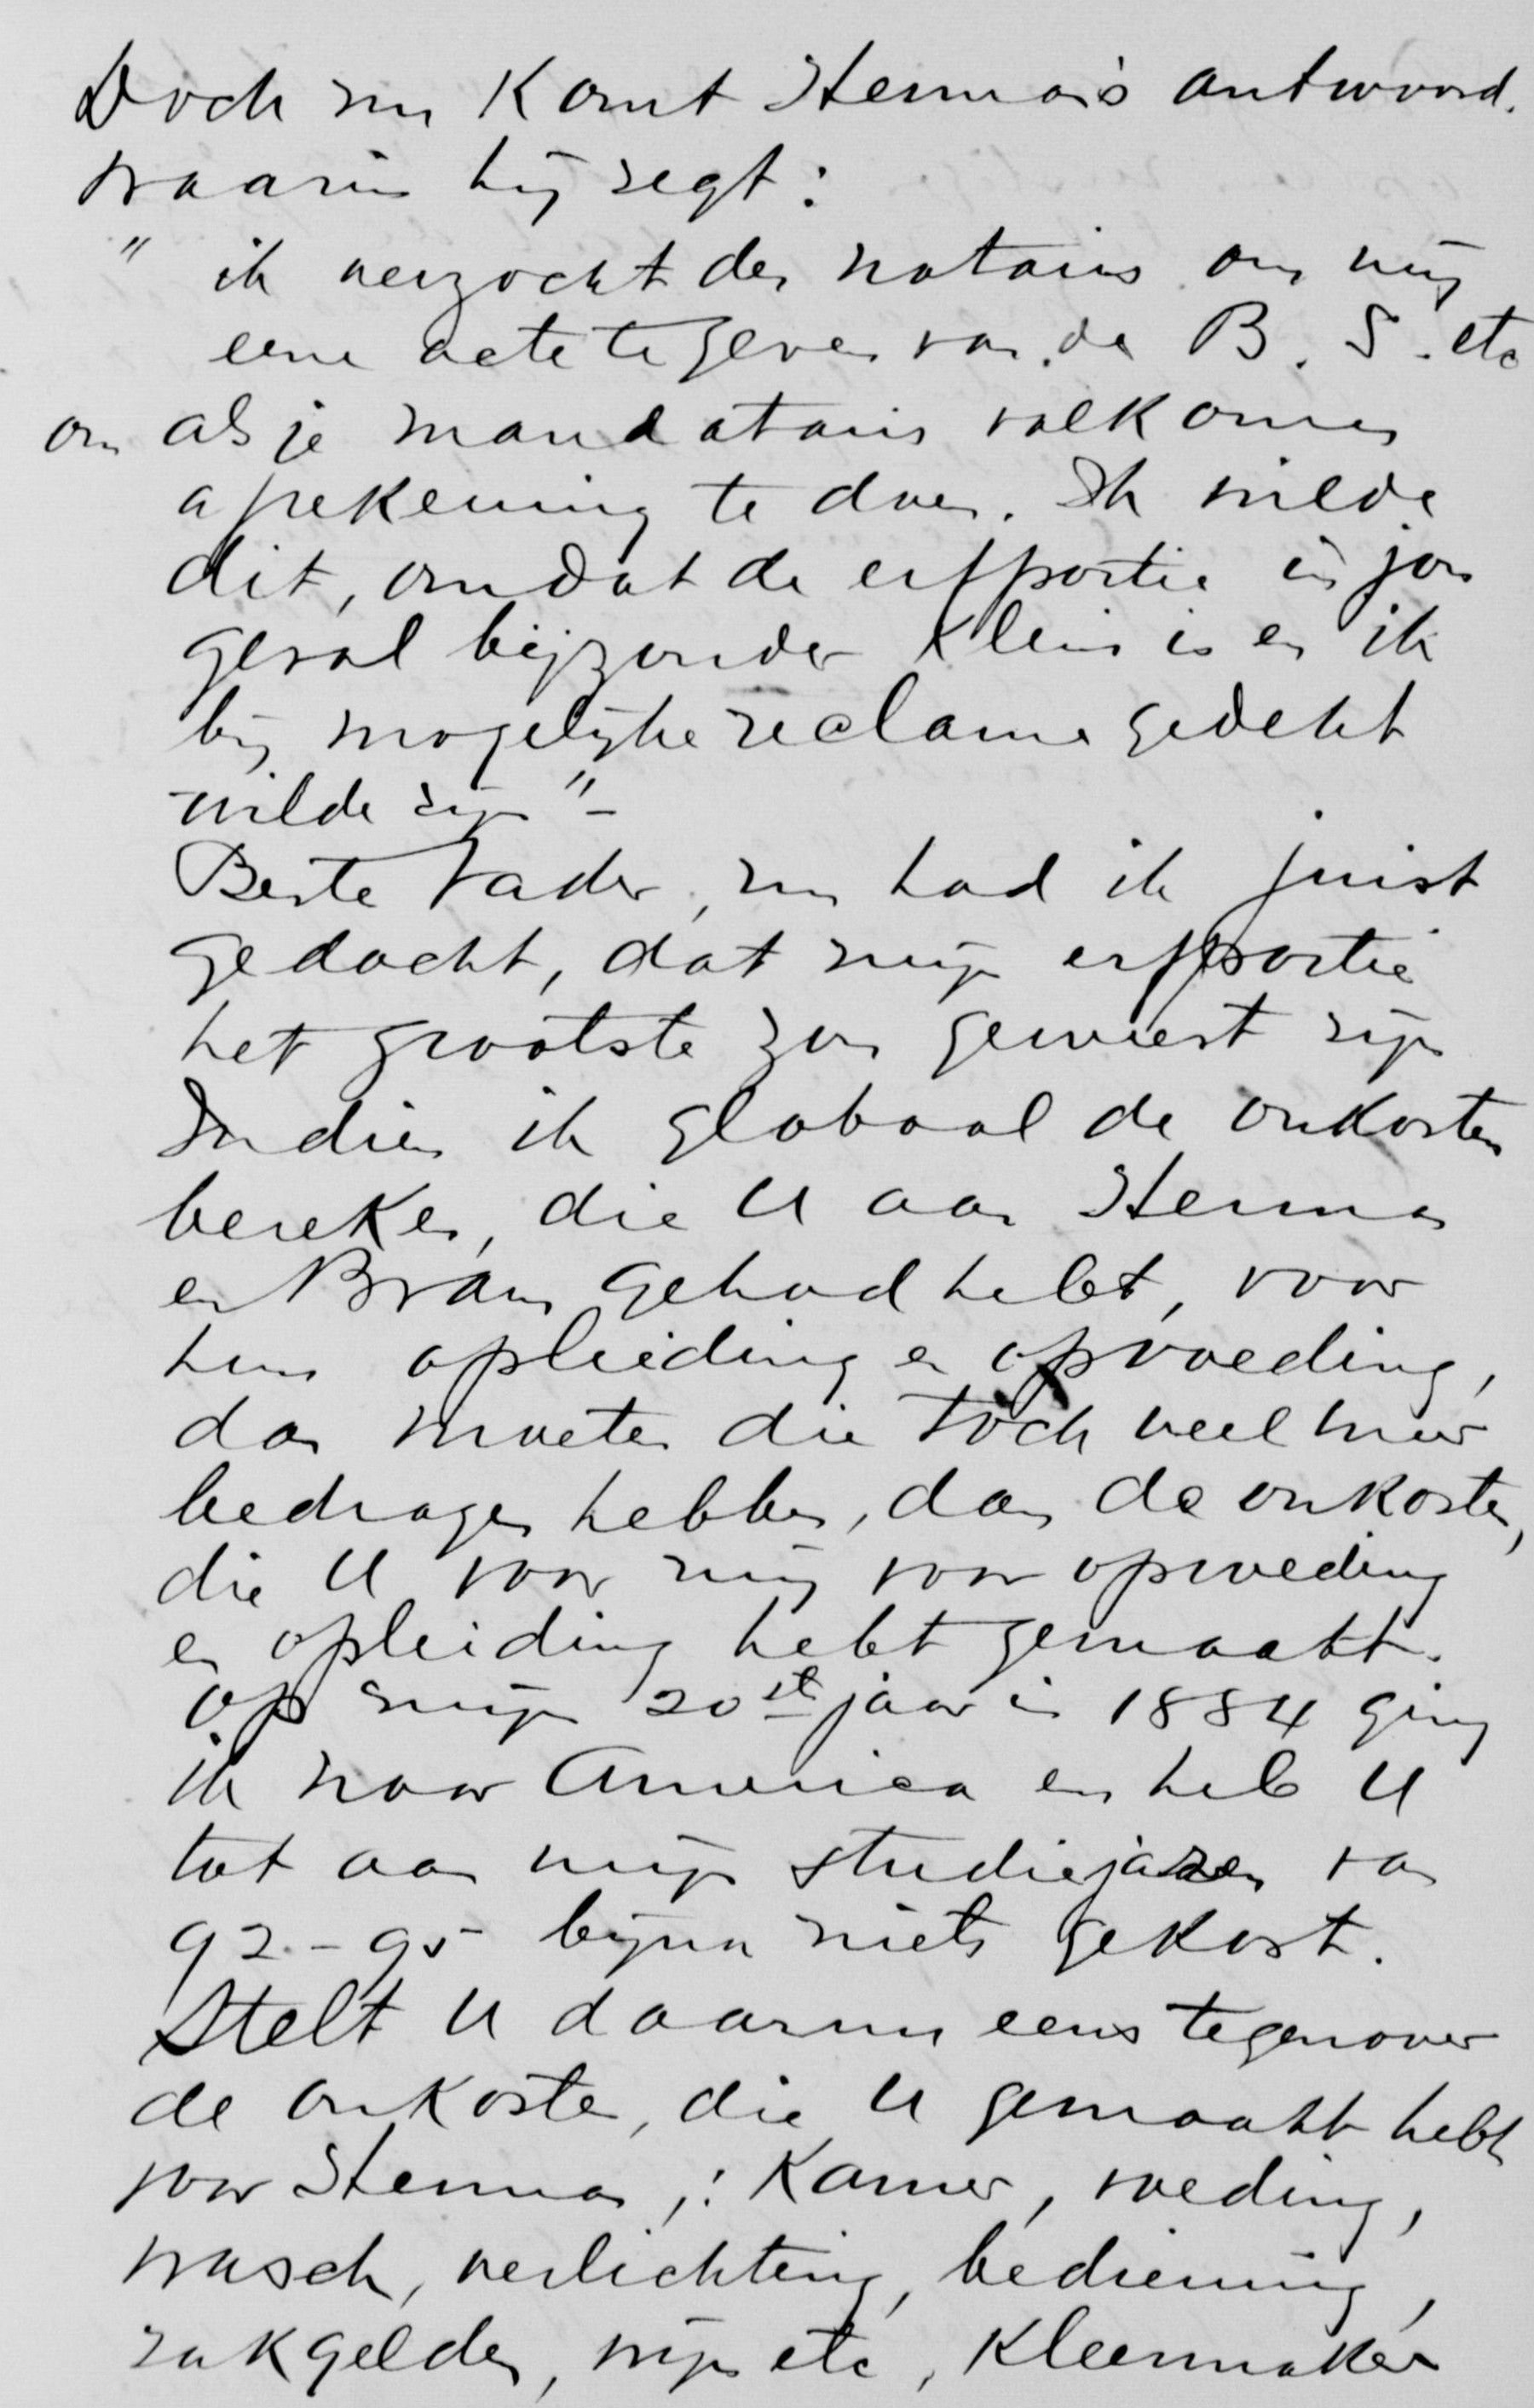 Doch nu komt Herman's antwoord.
waarin hij zegt:
" ik verzocht den notaris om mij
eene acte te geven van de B. S. etc
om als je mandataris volkomen
afrekening te doen. Ik wilde
dit, omdat de erfportie in jou
geval bijzonder klein is en ik
bij mogelijke reclame gedekt
wilde zijn" -
Beste Vader, nu had ik juist
gedacht, dat mijn erfportie
het grootste zou geweest zijn
Indien ik globaal de onkosten
bereken, die U aan Herman
en Bram gehad hebt, voor
hun opleiding en opvoeding,
dan moeten die toch veel meer
bedragen hebben, dan de onkosten,
die U voor mij voor opvoeding
en opleiding hebt gemaakt.
Op mijn 20ste jaar in 1884 ging
ik naar America en heb U
tot aan mijn studiejaren van
92 - 95 bijna niets gekost.
Stelt U daar nu eens tegenover
de onkosten, die U gemaakt hebt
voor Herman,: Kamer, voeding,
wasch, verlichting, bediening,
zakgelden, wijn etc, kleermaker